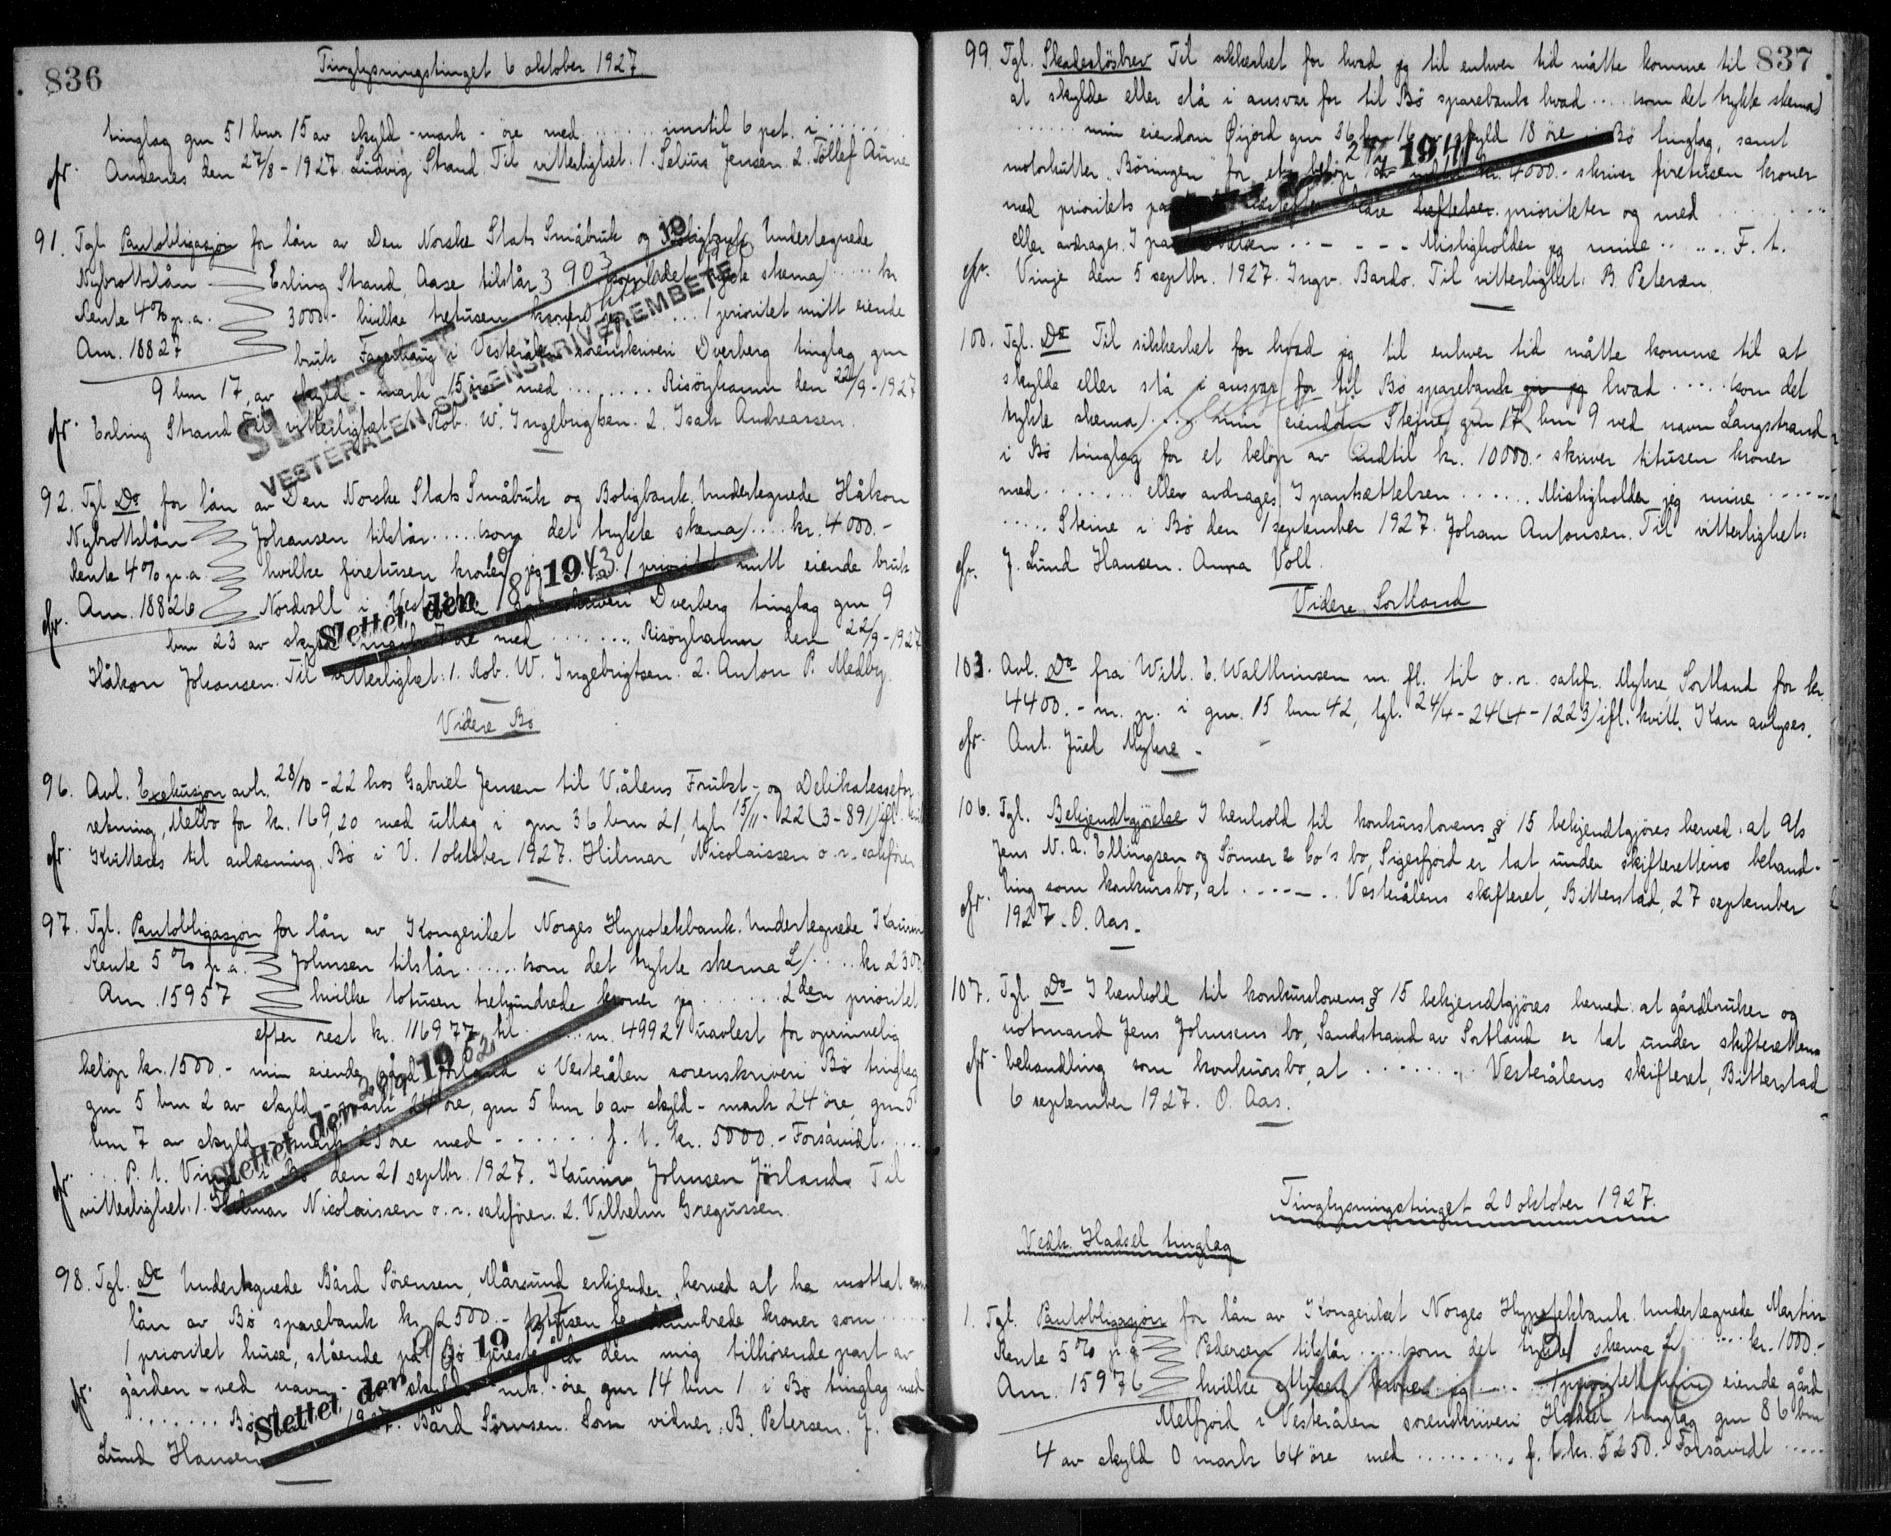 836
Tinglysningstinget 6 oktober 1927.
tinglag gnr 51 bnr 15 av skyld - mark - øre med ...... inntil 6 pct. i ......
Andenes den 27/8 - 1927. Ludvig Strand. Til vitterlighet: 1. Selius Jensen. 2. Tollef Aune
91. Tgl. Pantobligasjon for lån av Den Norske Stats Småbruk og Boligbank. Undertegnede
Nybrottslån Erling Strand, Aase tilstår (som det trykte skema) ..... kr
Rente 4% p.a. 3000.- hvilke tretusen kroner jeg ... 1 prioritet mitt eiende
Am. 18827 bruk Fagerhaug i Vesterålen sorenskriveri Dverberg tinglag gnr
9 bnr 17, av skyld - mark 15 øre med ........ Risöyhamn den 22/9 - 1927
Erling Strand Til vitterlighet: Rob. W. Ingebrigtsen. 2. Isak Andreassen.
SLETTET 19
VESTERÅLEN SORENSKRIVEREMBETE
92. Tgl. Do for lån av Den Norske Stats Småbruk og Boligbank. Undertegnede Håkon
Nybrottslån Johansen tilstår ..... (som det trykte skema) .... kr. 4000.-
Rente 4% p.a. hvilke firetusen kroner jeg ... 1 prioritet mitt eiende bruk
Am. 18826 Nordvoll i Vesterålen sorenskriveri Dverberg tinglag gnr 9
bnr 23 av skyld - mark 7 øre med ....... Risöyhamn den 22/9 - 1927
Håkon Johansen. Til vitterlighet: 1. Rob. W. Ingebrigtsen. 2. Anton P. Medby.
Slettet den 18/ 1943.
Videre Bö
96. Avl. Exekusjon avh. 28/10 - 22 hos Gabriel Jensen til V.ålens Frukt- og Delikatessefor
retning, Melbo for kr. 169,20 med utlæg i gnr 36 bnr 21, tgl. 15/11 - 22 (3 - 891) ifl. kvitt
Kvitteres til avlæsning. Bö i V. 1 oktober 1927. Hilmar Nicolaissen o.r. sakfører
97. Tgl. Pantobligasjon for lån av Kongeriket Norges Hypotekbank. Undertegnede Kaurin
Rente 5% p.a. Johnsen tilstår ...... (som det trykte skema L) ..... kr 2300
Am. 15957 hvilke totusen trehundrede kroner jeg ....... 2den prioritet
efter rest kr. 1169 77 til ..... m. 49921 uavløst for oprinnelig
beløp kr. 1500.- min eiende gård Jörland i Vesterålen sorenskriveri Bö tinglag
gnr 5 bnr 2 av skyld - mark 24 øre, gnr 5 bnr 6 av skyld - mark 24 øre, gnr 5
bnr 7 av skyld - mark 25 øre med ....... f. t. kr. 5000.- Forsåvidt .....
... P. t. Vinje i Bö den 21 septbr. 1927. Kaurin Johnsen Jörland. Til
vitterlighet: 1. Hilmar Nicolaissen o.r. sakfører. 2. Vilhelm Gregussen.
Slettet den 1952
98. Tgl. Do Undertegnede Bård Sørensen, Mårsund erkjender herved at ha mottat som
lån av Bö sparebank kr. 2500.- totusen femhundrede kroner som ......
1 prioritet huse, stående på Bö prestegård den mig tilhörende part av
gården - ved navn - av skyld - mk. - øre gnr 14 bnr 1 i Bö tinglag med
........ Bö 1927. Bård Sørensen. Som vidner: B. Petersen. J.
Lund Hansen
Slettet den 19
837
99. Tgl. Skadeslösbrev Til sikkerhet for hvad jeg til enhver tid måtte komme til
at skylde eller stå i ansvar for til Bö sparebank hvad ..... (som det trykte skema)
....... min eiendom Öijord gnr 36 bnr 16 av skyld 18 øre i Bö tinglag, samt
motorkutter "Böringen" for et beløp av indtil kr. 4000.- skriver firetusen kroner
med prioritets heftelser prioriteter og med .........
eller avdrages. I pantsættelsen ..... Misligholder jeg mine ...... F. t.
Vinje den 5 septbr. 1927. Ingv. Bardo. Til vitterlighet: B. Petersen.
1941
100. Tgl. Do Til sikkerhet for hvad jeg til enhver tid måtte komme til at
skylde eller stå i ansvar for til Bö sparebank hvad ..... (som det
trykte skema) .... min eiendom Steine gnr 17 bnr 9 ved navn Langstrand
i Bö tinglag for et beløp av indtil kr. 10000.- skriver titusen kroner
med ........ eller avdrages. I pantsættelsen ...... Misligholder jeg mine ......
..... Steine i Bö den 1 september 1927. Johan Antonsen. Til vitterlighet:
J. Lund Hansen. Anna Voll.
Videre Sortland
103. Avl. Do fra Will. E. Walthinsen m. fl. til o.r. sakfr. Myhre, Sortland for kr.
4400.- m. p. i gnr. 15 bnr 42, tgl. 24/4 - 24 (4 - 1223) ifl. kvitt. Kan avlyses.
Ant. Juel Myhre.
106. Tgl. Bekjendtgjörelse I henhold til konkurslovens § 15 bekjendtgjöres herved: at A/s
Jens N. A. Ellingsen og Sønner & Co's bo, Sigerfjord er tat under skifterettens behand-
ling som konkursbo, at ...... Vesterålens skifteret, Bitterstad, 27 september
1927. O. Aas.
107. Tgl. Do I henhold til konkurslovens § 15 bekjendtgjöres herved: at gårdbruker og
notmand Jens Johnsens bo, Sandstrand av Sortland er tat under skifterettens
behandling som konkursbo, at ........ Vesterålens skifteret, Bitterstad
6 september 1927. O. Aas.
Tinglysningstinget 20 oktober 1927.
Vedk. Hadsel tinglag
1. Tgl. Pantobligasjon for lån av Kongeriket Norges Hypotekbank. Undertegnede Martin
Rente 5% p.a. Pedersen tilstår ..... (som det trykte skema L) ...... kr. 1000.-
Am. 15976 hvilke ettusen kroner jeg ..... 1 prioritet min eiende gård
Melfjord i Vesterålen sorenskriveri Hadsel tinglag gnr 86 bnr
4 av skyld 0 mark 64 øre med ......... f. t. kr. 5250.- Forsåvidt .....